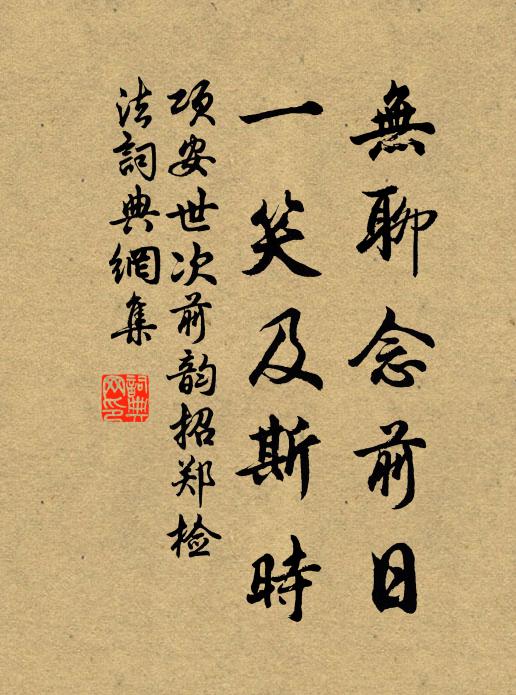 無聊念前日
一笑及斯時
项安世次前韵招郑检
法詞典網集
詞典
网印